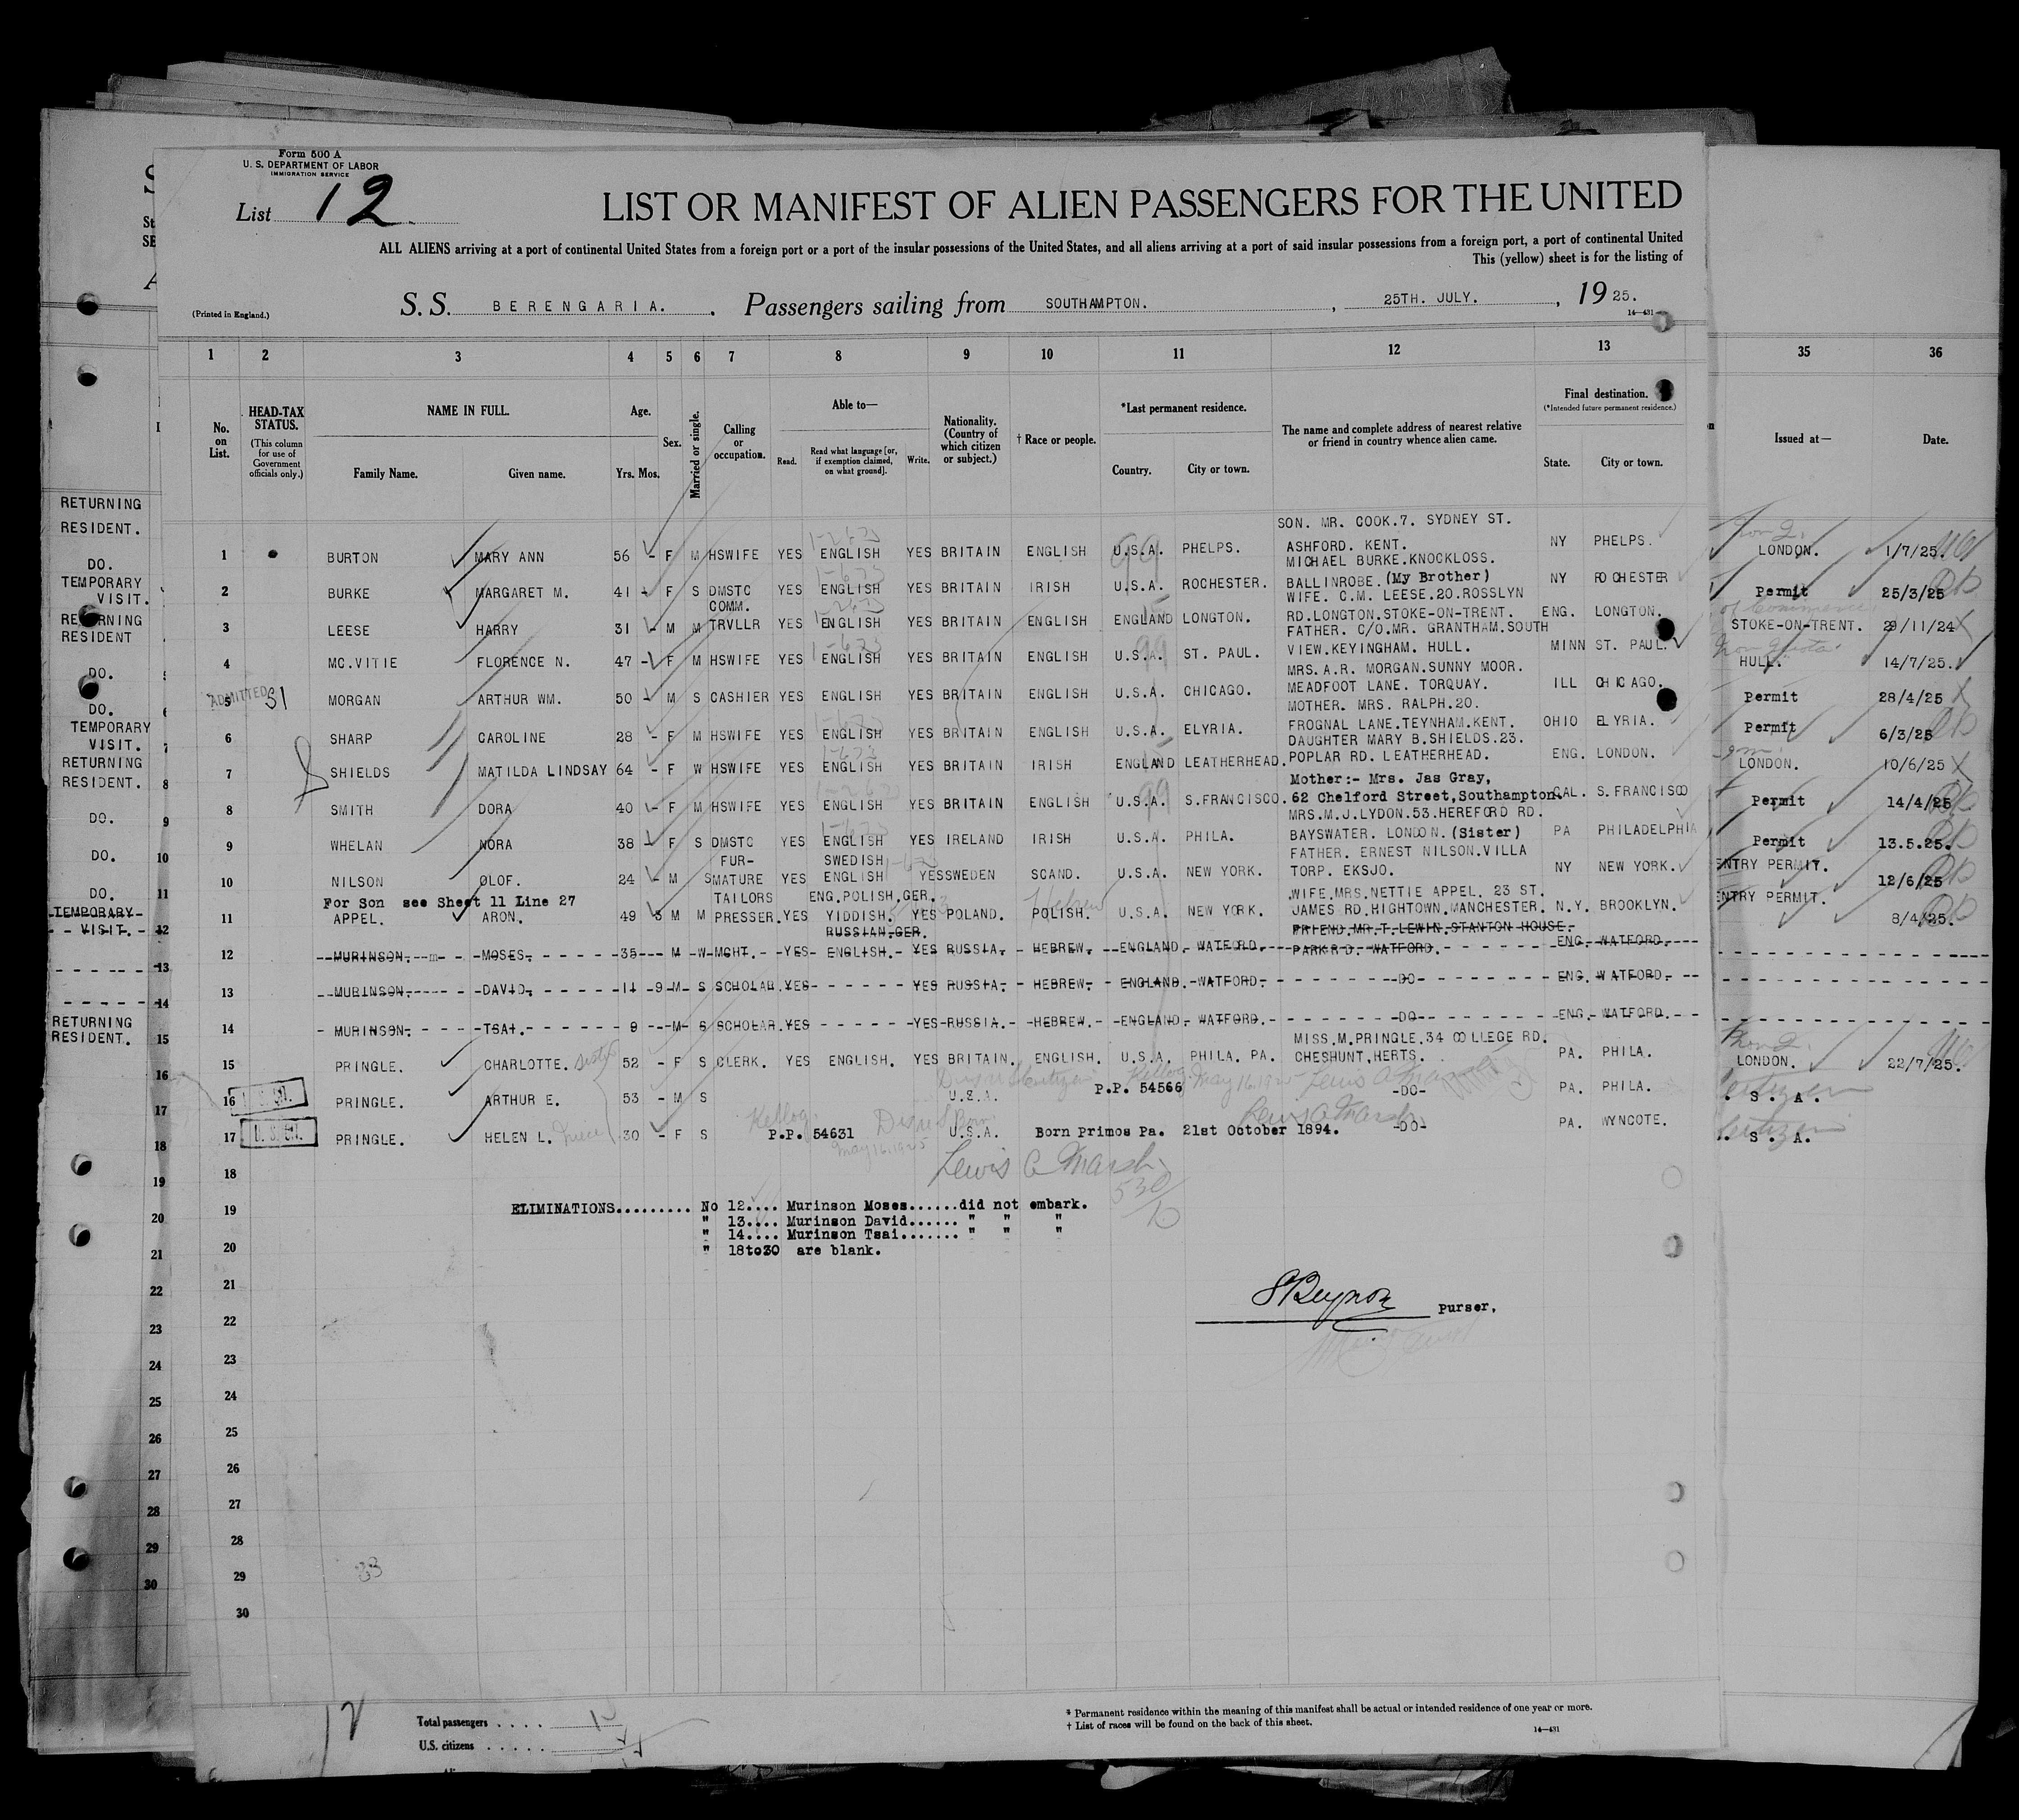 Form 500 A
U. S. DEPARTMENT OF LABOR
IMMIGRATION SERVICE
List 12
LIST OR MANIFEST OF ALIEN PASSENGERS FOR THE UNITED
ALL ALIENS arriving at a port of continental United States from a foreign port or a port of the insular possessions of the United States, and all aliens arriving at a port of said insular possessions from a foreign port, a port of continental United
This (yellow) sheet is for the listing of
(Printed in England.)
S. S. BERENGARIA. Passengers sailing from SOUTHAMPTON. , 25TH. JULY. , 1925.
14—431
1 2 3 4 5 6 7 8 9 10 11 12 13 35 36
No. on List.
HEAD-TAX STATUS. (This column for use of Government officials only.)
NAME IN FULL. Family Name. Given name.
Age. Yrs. Mos.
Sex.
Married or single.
Calling or occupation.
Able to— Read. Read what language [or, if exemption claimed, on what ground]. Write.
Nationality. (Country of which citizen or subject.)
† Race or people.
*Last permanent residence. Country. City or town.
The name and complete address of nearest relative or friend in country whence alien came.
Final destination. (*Intended future permanent residence.) State. City or town.
Issued at— Date.
RETURNING RESIDENT. 1 BURTON MARY ANN 56 - F M HSWIFE YES ENGLISH YES BRITAIN ENGLISH U.S.A. PHELPS. SON. MR. COOK.7. SYDNEY ST. ASHFORD. KENT. NY PHELPS. LONDON. 1/7/25.
DO. 2 BURKE MARGARET M. 41 - F S DMSTC YES ENGLISH YES BRITAIN IRISH U.S.A. ROCHESTER. MICHAEL BURKE.KNOCKLOSS. BALLINROBE. (My Brother) NY ROCHESTER Permit 25/3/25
TEMPORARY VISIT. 3 LEESE HARRY 31 - M M COMM. TRVLLR YES ENGLISH YES BRITAIN ENGLISH ENGLAND LONGTON. WIFE. C.M. LEESE.20.ROSSLYN RD.LONGTON.STOKE-ON-TRENT. ENG. LONGTON. STOKE-ON-TRENT. 29/11/24
RETURNING RESIDENT 4 MC.VITIE FLORENCE N. 47 - F M HSWIFE YES ENGLISH YES BRITAIN ENGLISH U.S.A. ST. PAUL. FATHER. C/O.MR. GRANTHAM.SOUTH VIEW.KEYINGHAM. HULL. MINN ST. PAUL. HULL. 14/7/25.
DO. ADMITTED SI 5 MORGAN ARTHUR WM. 50 - M S CASHIER YES ENGLISH YES BRITAIN ENGLISH U.S.A. CHICAGO. MRS.A.R. MORGAN.SUNNY MOOR. MEADFOOT LANE. TORQUAY. ILL CHICAGO. Permit 28/4/25
DO. 6 SHARP CAROLINE 28 - F M HSWIFE YES ENGLISH YES BRITAIN ENGLISH U.S.A. ELYRIA. MOTHER. MRS. RALPH.20. FROGNAL LANE.TEYNHAM.KENT. OHIO ELYRIA. Permit 6/3/25
TEMPORARY VISIT. 7 SHIELDS MATILDA LINDSAY 64 - F W HSWIFE YES ENGLISH YES BRITAIN IRISH ENGLAND LEATHERHEAD. DAUGHTER MARY B.SHIELDS.23. POPLAR RD. LEATHERHEAD. ENG. LONDON. LONDON. 10/6/25
RETURNING RESIDENT. 8 SMITH DORA 40 - F M HSWIFE YES ENGLISH YES BRITAIN ENGLISH U.S.A. S.FRANCISCO. Mother:- Mrs. Jas Gray, 62 Chelford Street,Southampton. CAL. S.FRANCISCO Permit 14/4/25
DO. 9 WHELAN NORA 38 - F S DMSTC YES ENGLISH YES IRELAND IRISH U.S.A. PHILA. MRS.M.J.LYDON.53.HEREFORD RD. BAYSWATER. LONDON. (Sister) PA PHILADELPHIA Permit 13.5.25.
DO. 10 NILSON OLOF. 24 - M S FUR- MATURE YES SWEDISH ENGLISH YES SWEDEN SCAND. U.S.A. NEW YORK. FATHER. ERNEST NILSON.VILLA TORP. EKSJO. NY NEW YORK. ENTRY PERMIT. 12/6/25
For Son see Sheet 11 Line 27
DO. 11 APPEL. ARON. 49 3 M M TAILORS PRESSER. YES ENG.POLISH.GER. YIDDISH. YES POLAND. POLISH. Hebrew U.S.A. NEW YORK. WIFE.MRS.NETTIE APPEL. 23 ST. JAMES RD.HIGHTOWN.MANCHESTER. N.Y. BROOKLYN. ENTRY PERMIT. 8/4/25.
TEMPORARY VISIT. 12 MURINSON. MOSES. 35 M W MCHT. YES RUSSIAN.GER. ENGLISH. YES RUSSIA. HEBREW. ENGLAND. WATFORD. FRIEND.MR.T.LEWIN.STANTON HOUSE. PARK RD. WATFORD. ENG. WATFORD.
13 MURINSON. DAVID. 11 9 M S SCHOLAR. YES YES RUSSIA. HEBREW. ENGLAND. WATFORD. -DO- ENG. WATFORD.
14 MURINSON. TSAI. 9 - M S SCHOLAR. YES YES RUSSIA. HEBREW. ENGLAND. WATFORD. -DO- ENG. WATFORD.
RETURNING RESIDENT. 15 PRINGLE. CHARLOTTE. sister 52 - F S CLERK. YES ENGLISH. YES BRITAIN. ENGLISH. U.S.A. PHILA. PA. MISS.M.PRINGLE.34 COLLEGE RD. CHESHUNT,HERTS. PA. PHILA. LONDON. 22/7/25.
16 PRINGLE. ARTHUR E. 53 - M S U.S.A. P.P. 54566 May 16.1925 -DO- PA. PHILA. S. A.
U.S. CIT. 17 PRINGLE. HELEN L. niece 30 - F S Kellog. P.P. 54631 May 16.1925 U.S.A. Born Primos Pa. 21st October 1894. -DO- PA. WYNCOTE. S. A.
Lewis A Marsh
530
10
18
19 ELIMINATIONS......... No 12.... Murinson Moses......did not embark.
" 13.... Murinson David...... " " "
" 14.... Murinson Tsai....... " " "
20 " 18to30 are blank.
21
22 Purser,
23
24
25
26
27
28
29
30
33
12
Total passengers . . . .
U.S. citizens . . . . .
* Permanent residence within the meaning of this manifest shall be actual or intended residence of one year or more.
† List of races will be found on the back of this sheet.
14—431